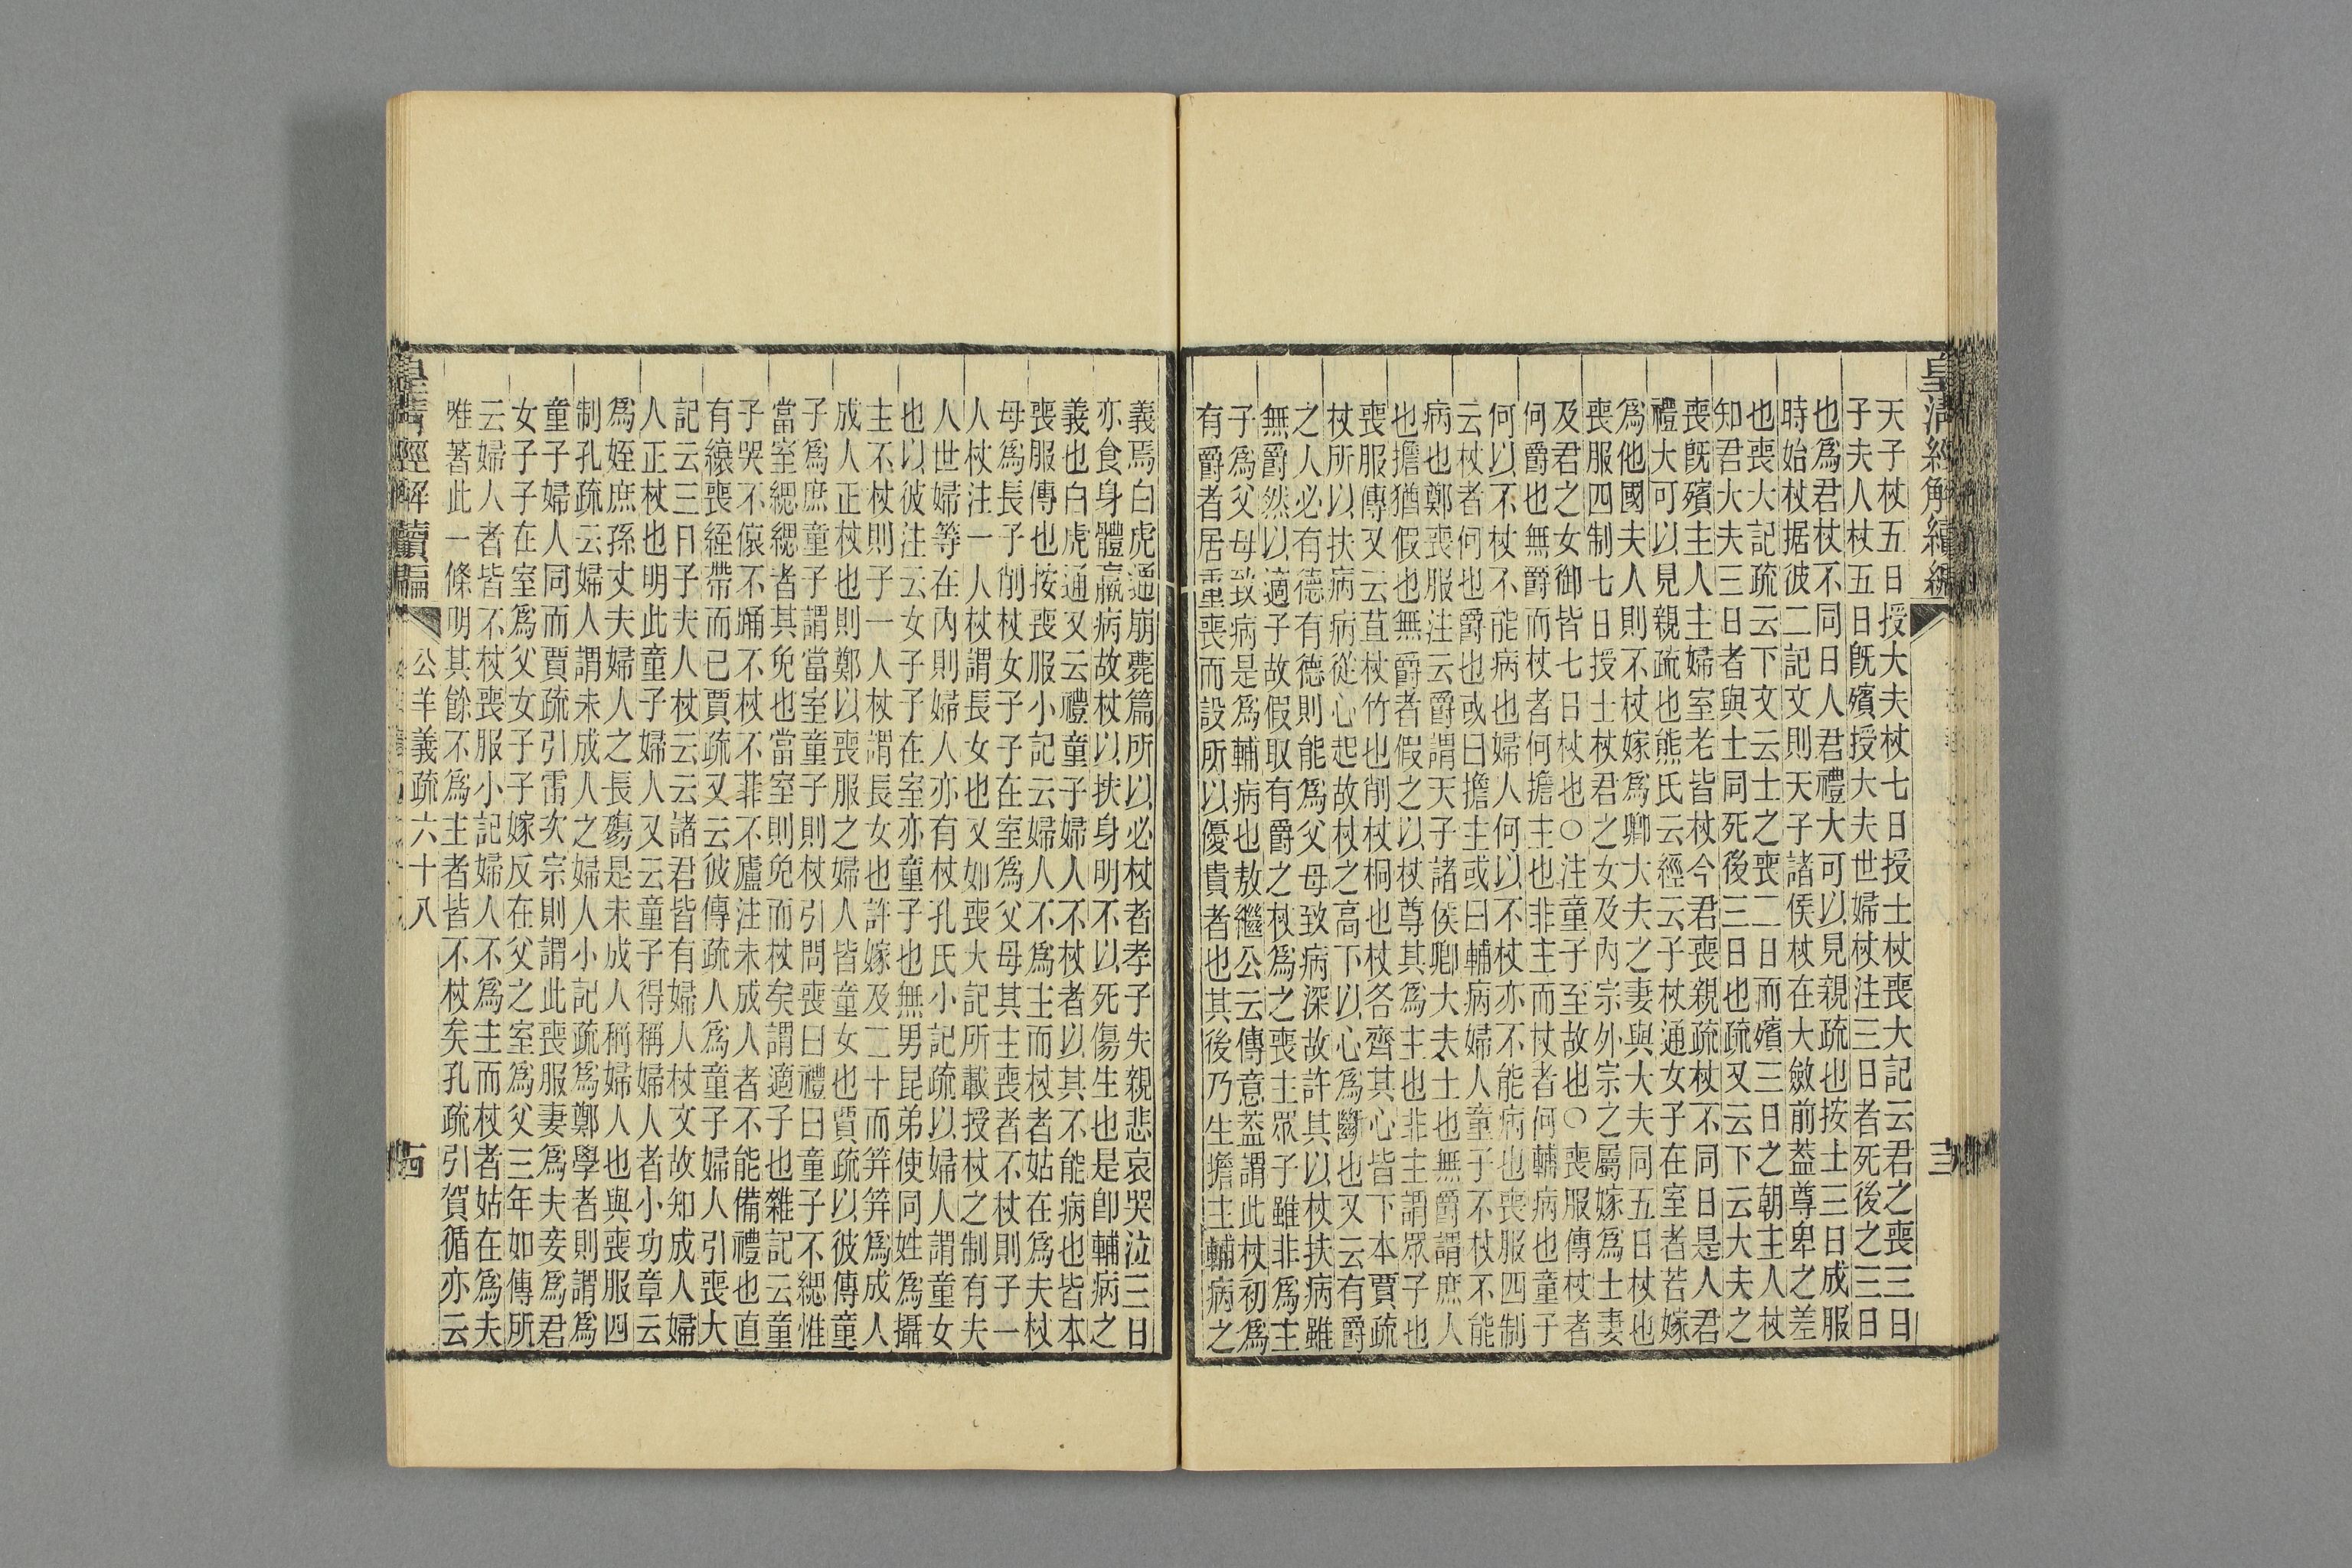 皇清經解續編
天子杖五日授大夫杖七日授士杖喪大記云君之喪三日
子夫人杖五日旣殯授大夫世婦杖注三日者死後之三日
也爲君杖不同日人君禮大可以見親疏也按士三日成服
時始杖据彼二記文則天子諸侯杖在大斂前葢尊卑之差
也喪大記疏云下文云士之喪二日而殯三日之朝主人杖
知君大夫三日者與士同死後三日也疏又云下云大夫之
喪旣殯主人主婦室老皆杖今君喪親疏杖不同日是人君
禮大可以見親疏也熊氏云經云子杖通女子在室者若嫁
爲他國夫人則不杖嫁爲卿大夫之妻與大夫同五日杖也
喪服四制七日授士杖君之女及內宗外宗之屬嫁爲士妻
及君之女御皆七日杖也○注童子至故也○喪服傳杖者
何爵也無爵而杖者何擔主也非主而杖者何輔病也童子
何以不杖不能病也婦人何以不杖亦不能病也喪服四制
云杖者何也爵也或曰擔主或曰輔病婦人童子不杖不能
病也鄭喪服注云爵謂天子諸侯卿大夫士也無爵謂庶人
也擔猶假也無爵者假之以杖尊其爲主也非主謂眾子也
喪服傳又云苴杖竹也削杖桐也杖各齊其心皆下本賈疏
杖所以扶病病從心起故杖之高下以心爲斷也又云有爵
之人必有德有德則能爲父母致病深故許其以杖扶病雖
無爵然以適子故假取有爵之杖爲之喪主眾子雖非爲主
子爲父母致病是爲輔病也敖繼公云傳意葢謂此杖初爲
有爵者居重喪而設所以優貴者也其後乃生擔主輔病之
義焉白虎通崩薨篇所以必杖者孝子失親悲哀哭泣三日
亦食身體羸病故杖以扶身明不以死傷生也是卽輔病之
義也白虎通又云禮童子婦人不杖者以其不能病也皆本
喪服傳也按喪服小記云婦人不爲主而杖者姑在爲夫杖
母爲長子削杖女子子在室爲父母其主喪者不杖則子一
人杖注一人杖謂長女也又如喪大記所載授杖之制有夫
人世婦等在內則婦人亦有杖孔氏小記疏以婦人謂童女
也以彼注云女子子在室亦童子也無男昆弟使同姓爲攝
主不杖則子一人杖謂長女也許嫁及二十而笄笄爲成人
成人正杖也則鄭以喪服之婦人皆童女也賈疏以彼傳童
子爲庶童子謂當室童子則杖引問喪曰禮曰童子不緦惟
當室緦緦者其免也當室則免而杖矣謂適子也雜記云童
子哭不偯不踊不杖不菲不廬注未成人者不能備禮也直
有縗喪絰帶而已賈疏又云彼傳疏人爲童子婦人引喪大
記云三日子夫人杖云云諸君皆有婦人杖文故知成人婦
人正杖也明此童子婦人又云童子得稱婦人者小功章云
爲姪庶孫丈夫婦人之長殤是未成人稱婦人也與喪服四
制孔疏云婦人謂未成人之婦人小記疏爲鄭學者則謂爲
童子婦人同而賈疏引雷次宗則謂此喪服妻爲夫妾爲君
女子子在室爲父女子子嫁反在父之室爲父三年如傳所
云婦人者皆不杖喪服小記婦人不爲主而杖者姑在爲夫
唯著此一條明其餘不爲主者皆不杖矣孔疏引賀循亦云
皇清經解續編
公羊義疏六十八